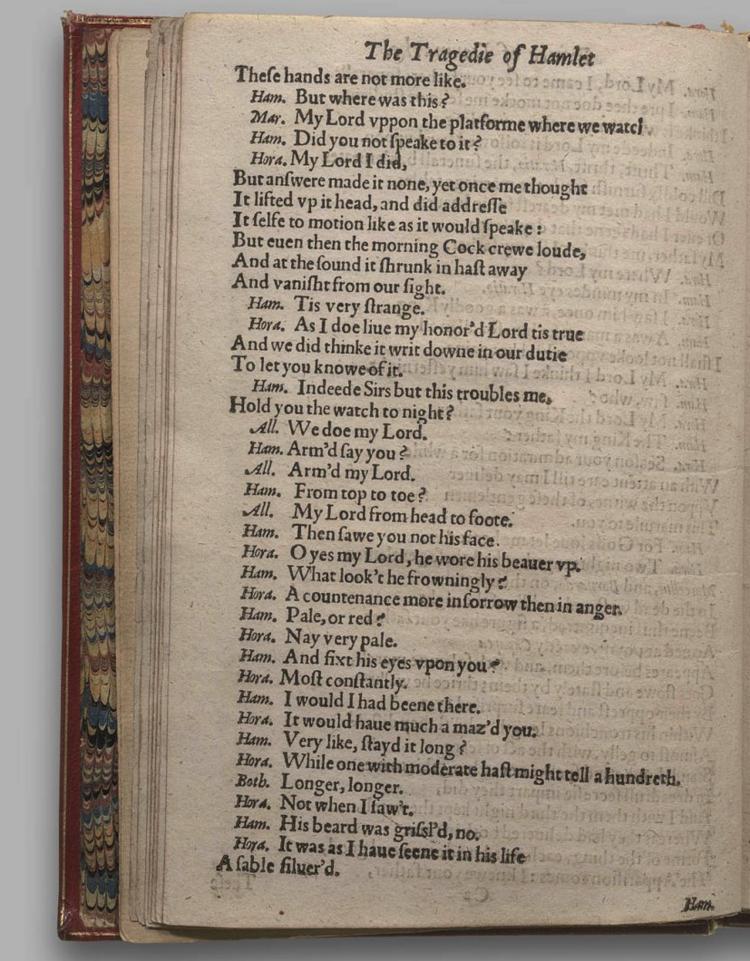 The Tragedie of Hamlet
Theſe hands are not more like.
Ham. But where was this?
Mar. My Lord vppon the platforme where we watch
Ham. Did you not ſpeake to it?
Hora. My Lord I did,
But anſwere made it none, yet once me thought
It lifted vp it head, and did addreſſe
It ſelfe to motion like as it would ſpeake:
But euen then the morning Cock crewe loude,
And at the ſound it ſhrunk in haſt away
And vaniſht from our ſight.
Ham. Tis very ſtrange.
Hora. As I doe liue my honor'd Lord tis true
And we did thinke it writ downe in our dutie
To let you knowe of it.
Ham. Indeede Sirs but this troubles me,
Hold you the watch to night?
All. We doe my Lord.
Ham. Arm'd ſay you?
All. Arm'd my Lord.
Ham. From top to toe?
All. My Lord from head to foote.
Ham. Then ſawe you not his face.
Hora. O yes my Lord, he wore his beauer vp.
Ham. What look't he frowningly?
Hora. A countenance more in ſorrow then in anger.
Ham. Pale, or red?
Hora. Nay very pale.
Ham. And fixt his eyes vpon you?
Hora. Moſt conſtantly.
Ham. I would I had beene there.
Hora. It would haue much a maz'd you.
Ham. Very like, ſtayd it long?
Hora. While one with moderate haſt might tell a hundreth.
Both. Longer, longer.
Hora. Not when I ſaw't.
Ham. His beard was griſsl'd, no.
Hora. It was as I haue ſeene it in his life
A ſable ſiluer'd.
Ham.